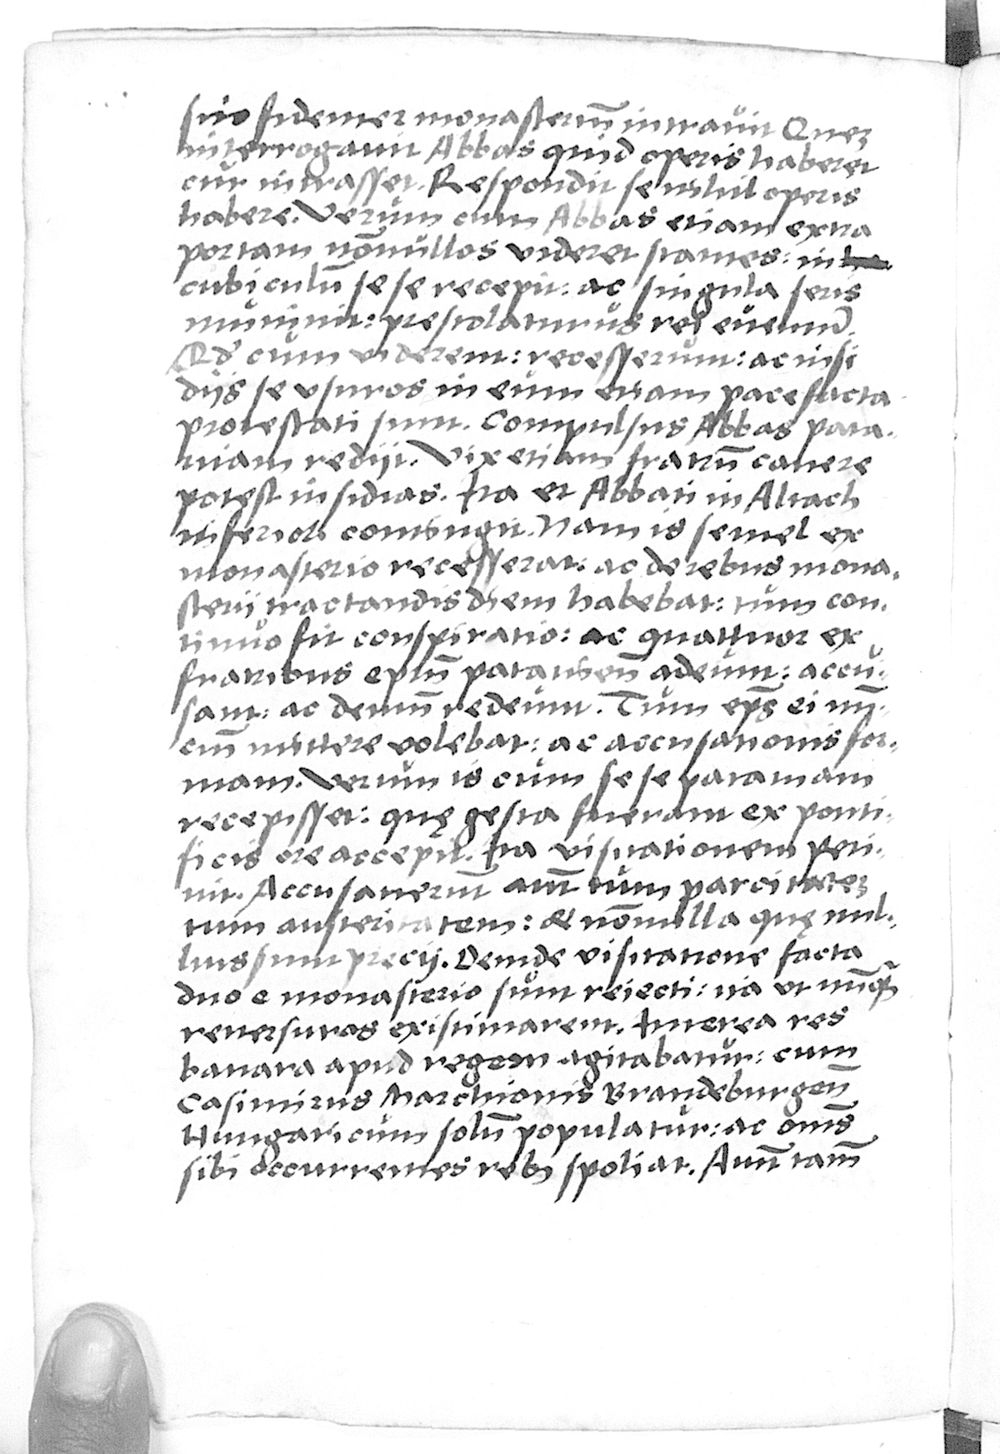 suo fidenter monasteriū intrauit Quez
interrogauit Abbas quid operis haberet
cur intrasset. Respondit se nihil operis
habere. Verum cum Abbas etiam extra
portam nōnullos videret stantes: in
cubiculū se se recepit: ac singula seris
muniuit: prestolaturus rei euentū.
Qd cum viderent: recesserunt: ac insi
dijs se vsuros in eum etiam pace facta
protestati sunt. Compulsus Abbas pata-
uiam redijt. Vix etiam fratrū cauere
potest insidias. Ita et Abbati in Altach
inferiori contingit. Nam is semel ex
monasterio recesserat: ac de rebus mona-
sterij tractandis diem habebat: tum con-
tinuo fit conspiratio: ac quattuor ex
fratribus epm̄ patauien̄ adeunt: accu-
sant: ac demū redeunt. Tum eps̄ ei nū-
ciū mittere volebat: ac accusationis for-
mam. Verum is cum se se patauiam
recepisset: quę gesta fuerant ex ponti-
ficis ore accepit. Ita visitationem peti-
uit. Accusauerūt aūt tum parcitatez
tum austeritatem: & nōnulla quę nul-
lius sunt precij. Deinde visitatione facta
duo e monasterio sunt reiecti: ita vt nūq̄
reuersuros existimarent. Interea res
bauara apud regem agitabatur: cum
Casimirus Marchionis Brandeburgen̄
Hungaricum solū populatur: ac om̄s
sibi occurrentes rebz spoliat. Auū tam̄